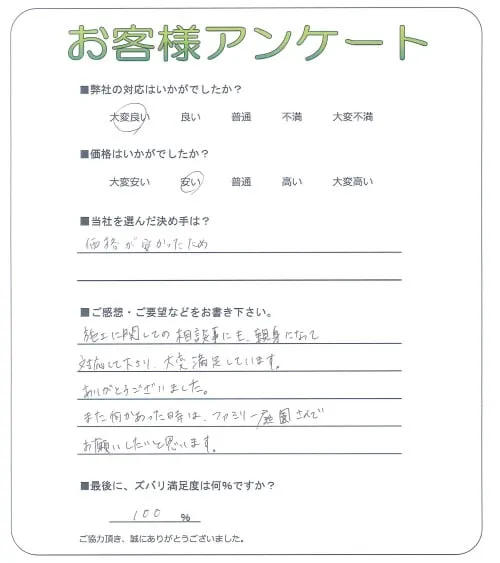 お客様アンケート
■弊社の対応はいかがでしたか？
大変良い 良い 普通 不満 大変不満
■価格はいかがでしたか？
大変安い 安い 普通 高い 大変高い
■当社を選んだ決め手は？
価格が安かったため
■ご感想・ご要望などをお書き下さい。
施工に関しての相談事にも、親身になって
対応して下さり、大変満足しています。
ありがとうございました。
また何かあった時は、ファミリー庭園さんで
お願いしたいと思います。
■最後に、ズバリ満足度は何％ですか？
100 ％
ご協力頂き、誠にありがとうございました。